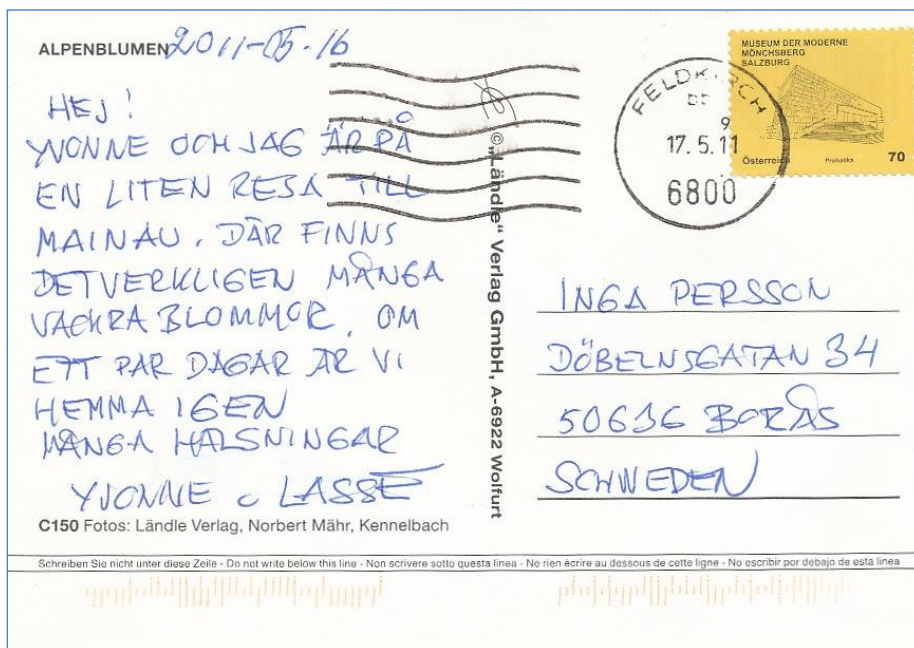 ALPENBLUMEN 2011-05-16
HEJ!
YVONNE OCH JAG ÄR PÅ
EN LITEN RESA TILL
MAINAU. DÄR FINNS
DET VERKLIGEN MÅNGA
VACKRA BLOMMOR. OM
ETT PAR DAGAR ÄR VI
HEMMA IGEN
MÅNGA HÄLSNINGAR
YVONNE o LASSE
C150 Fotos: Ländle Verlag, Norbert Mähr, Kennelbach
©„Ländle“ Verlag GmbH, A-6922 Wolfurt
FELDKIRCH
9
17.5.11
6800
MUSEUM DER MODERNE
MÖNCHSBERG
SALZBURG
Österreich Prohaska 70
INGA PERSSON
DÖBELNSGATAN 34
50636 BORÅS
SCHWEDEN
Schreiben Sie nicht unter diese Zeile - Do not write below this line - Non scrivere sotto questa linea - Ne rien écrire au dessous de cette ligne - No escribir por debajo de esta linea